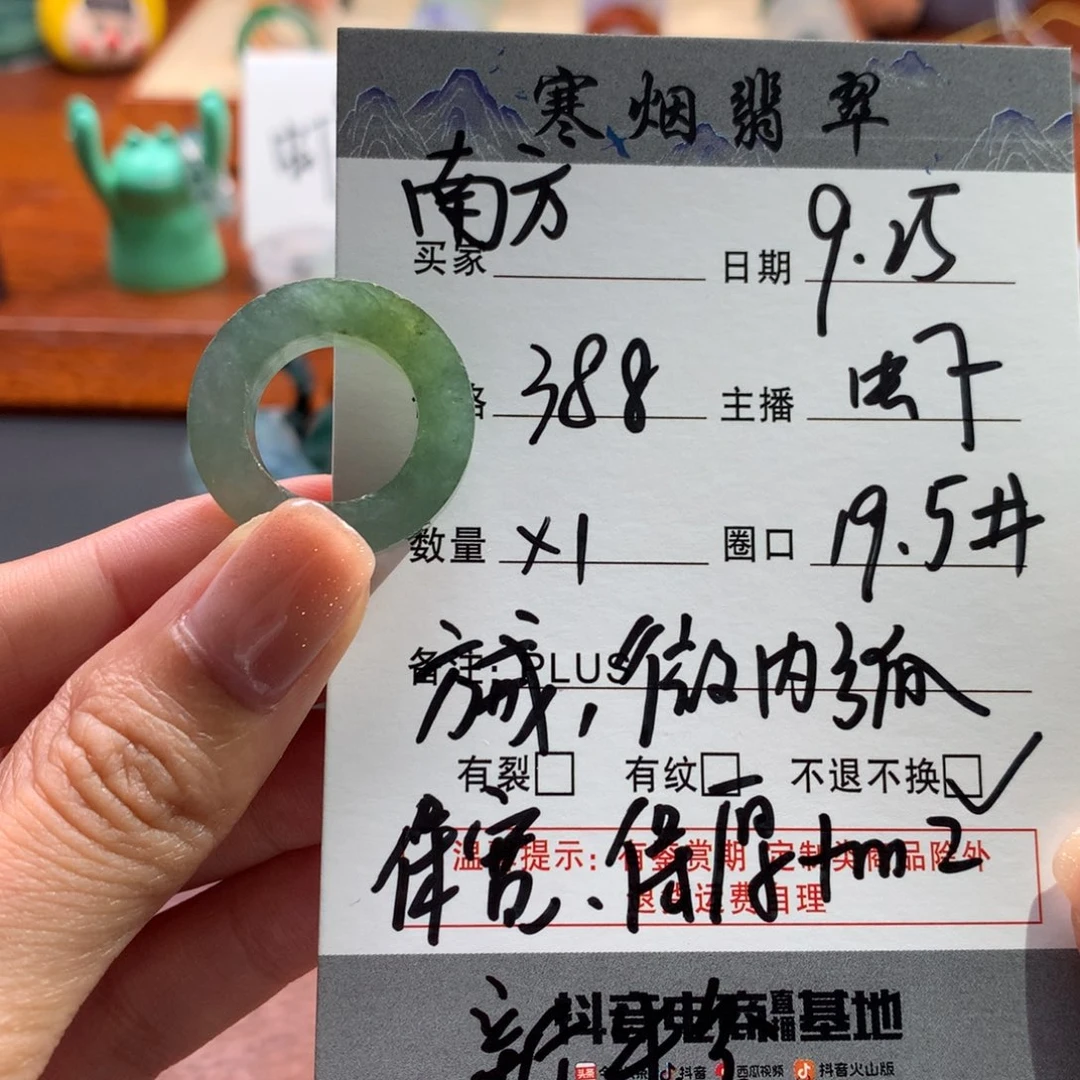 寒烟翡翠
南方
买家 日期 9.25
格 388 主播 虫干
数量 ×1 圈口 19.5#
备注: PLUS
微内弧
有裂 有纹 不退不换 ✓
保宽、保厚
温馨提示：有鉴赏期 定制类商品除外
退货运费自理
抖音电商直播基地
头条 抖音 西瓜视频 抖音火山版